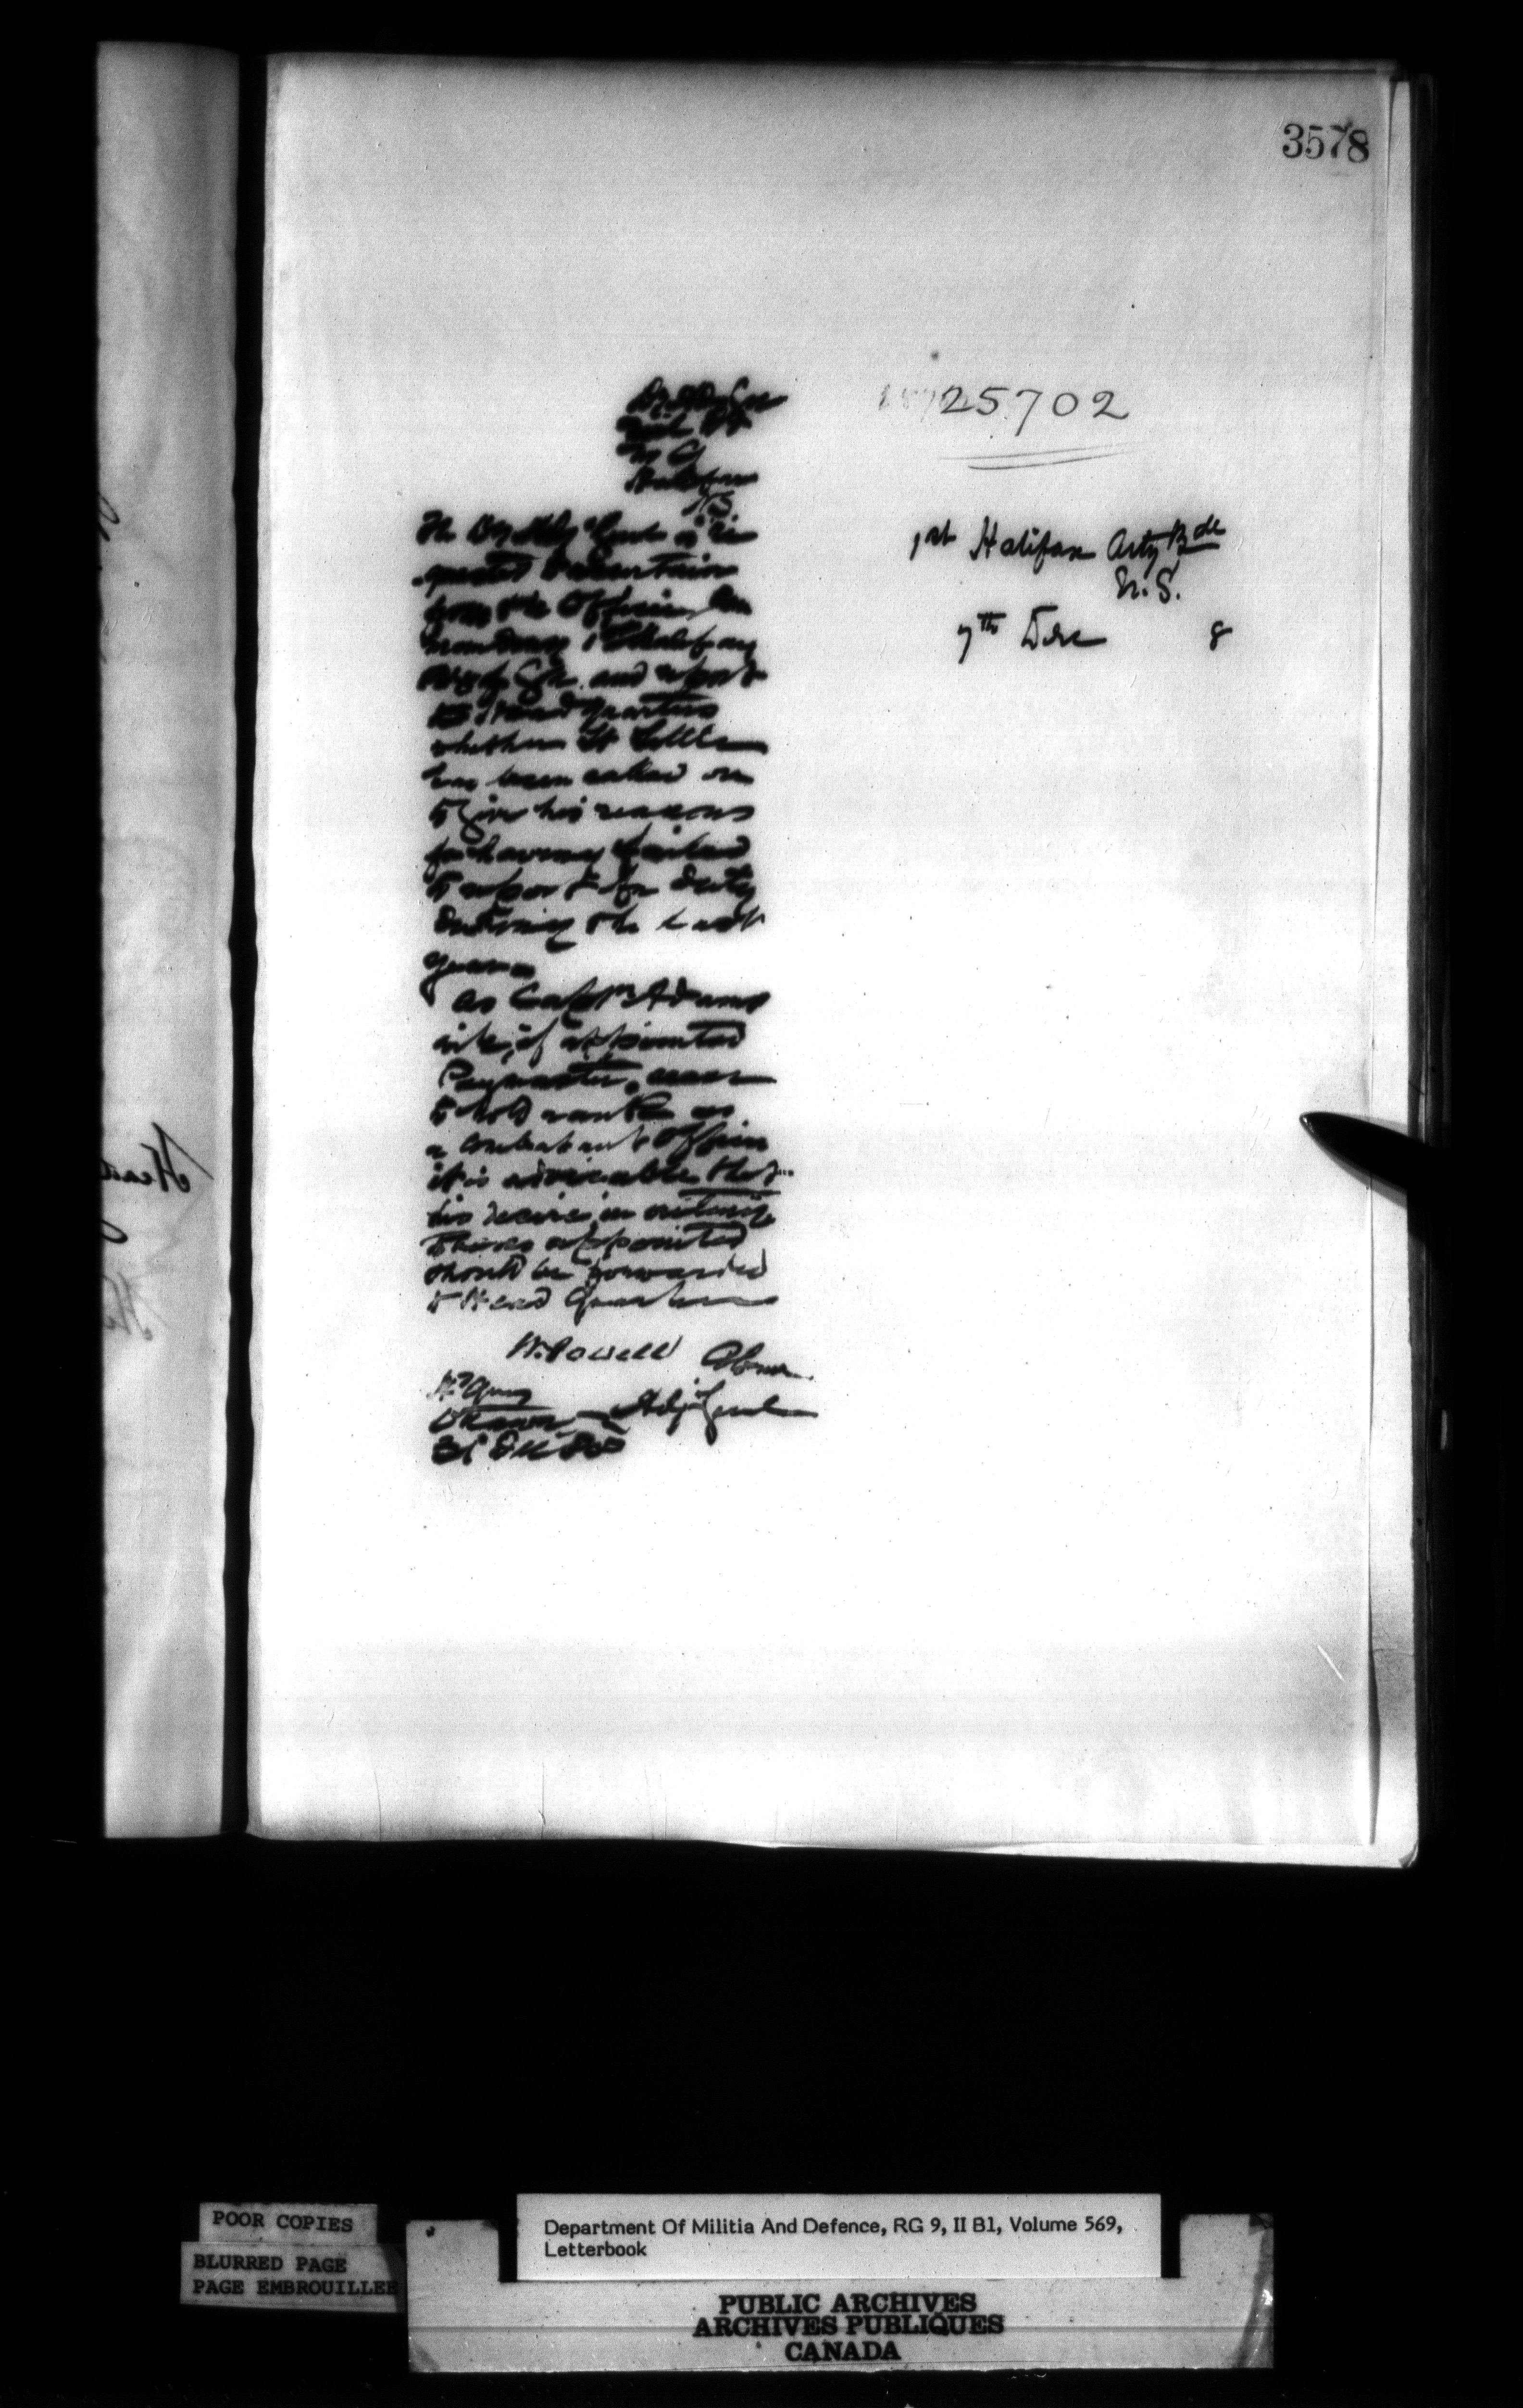 3578
25702
1st Halifax Arty Bde
N.S.
7th Dec 8
Halifax
N.S.
The Dy Adjt Genl is re
quested to ascertain
from the Officer Com
manding 1st Halifax
and report
to Head Quarters
whether Lt
has been called on
to give his reasons
for having failed
to report for duty
during the last
years
As Capt Adams
will, if appointed
Paymaster, cease
to hold rank as
a combatant Officer
it is advisable that
his desire in writing
to be so appointed
should be forwarded
to Head Quarters
W. Powell Colonel
Hd Qrs
Ottawa Adjt Genl
Dec
POOR COPIES
BLURRED PAGE
PAGE EMBROUILLEE
Department Of Militia And Defence, RG 9, II B1, Volume 569,
Letterbook
PUBLIC ARCHIVES
ARCHIVES PUBLIQUES
CANADA